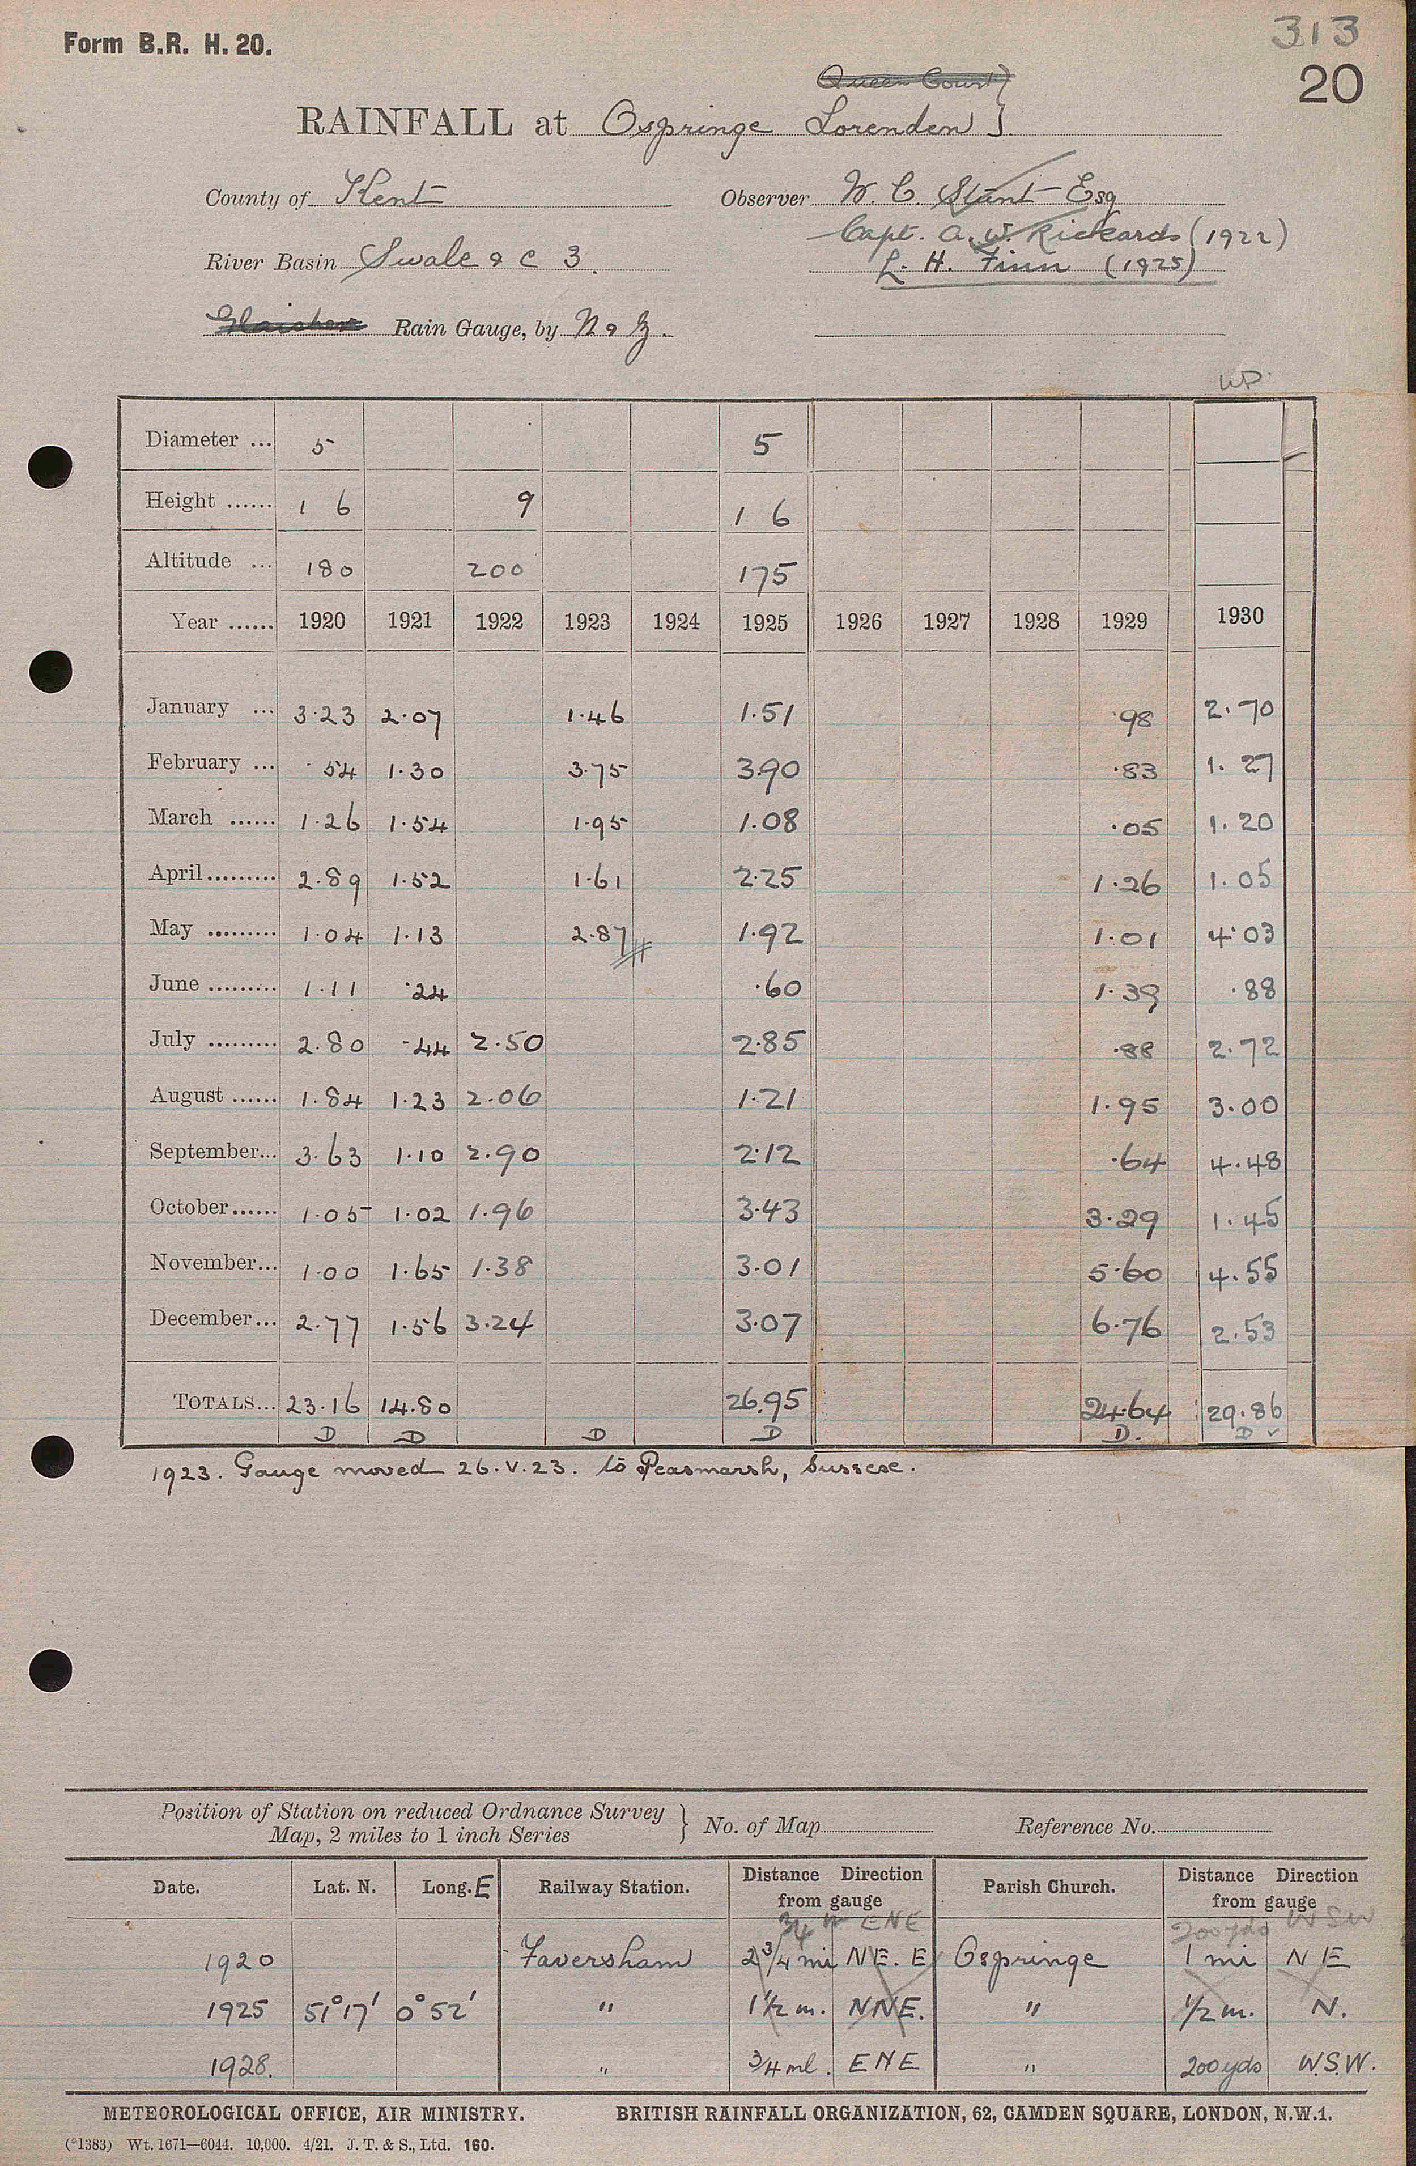 Form B.R. H. 20.
313
20
Queen Court }
RAINFALL at Ospringe Lorenden }
County of Kent
Observer W. C. Stunt Esq
Capt. A. W. Rickards (1922)
River Basin Swale & C 3.
L. H. Finn (1925)
Glaisher Rain Gauge, by N & Z.
Diameter ... 5 5
Height ...... 1 6 9 1 6
Altitude ... 180 200 175
Year ...... 1920 1921 1922 1923 1924 1925 1926 1927 1928 1929 1930
January ... 3.23 2.07 1.46 1.51 .98 2.70
February ... .54 1.30 3.75 3.90 .83 1.27
March ...... 1.26 1.54 1.95 1.08 .05 1.20
April ......... 2.89 1.52 1.61 2.25 1.26 1.05
May ......... 1.04 1.13 2.87 1.92 1.01 4.03
June ......... 1.11 .24 .60 1.39 .88
July ......... 2.80 .44 2.50 2.85 .88 2.72
August ...... 1.84 1.23 2.06 1.21 1.95 3.00
September... 3.63 1.10 2.90 2.12 .64 4.48
October...... 1.05 1.02 1.96 3.43 3.29 1.45
November... 1.00 1.65 1.38 3.01 5.60 4.55
December... 2.77 1.56 3.24 3.07 6.76 2.53
TOTALS... 23.16 14.80 26.95 24.64 29.86
D D D D D. D
1923. Gauge moved 26.V.23. to Peasmarsh, Sussex.
Position of Station on reduced Ordnance Survey
Map, 2 miles to 1 inch Series } No. of Map Reference No.
Date. Lat. N. Long. E Railway Station. Distance Direction from gauge Parish Church. Distance Direction from gauge
3/4 ENE 200 yds WSW
1920 Faversham 2 3/4 mi NE. E Ospringe 1 mi NE
1925 51° 17' 0° 52' " 1 1/2 m. NNE. " 1/2 m. N.
1928. " 3/4 ml. ENE " 200 yds W.S.W.
METEOROLOGICAL OFFICE, AIR MINISTRY. BRITISH RAINFALL ORGANIZATION, 62, CAMDEN SQUARE, LONDON, N.W.1.
(*1383) Wt. 1671—6044. 10,000. 4/21. J. T. & S., Ltd. 160.